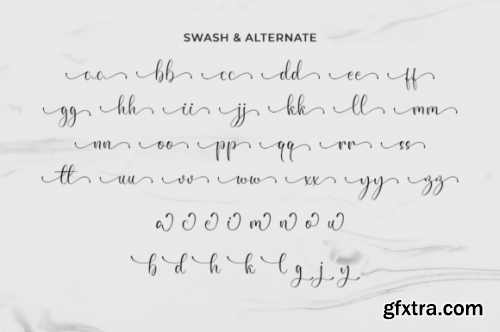 SWASH & ALTERNATE
aa bb cc dd ee ff
gg hh ii jj kk ll mm
nn oo pp qq rr ss
tt uu vv ww xx yy zz
b d h k l g j y
gfxtra.com